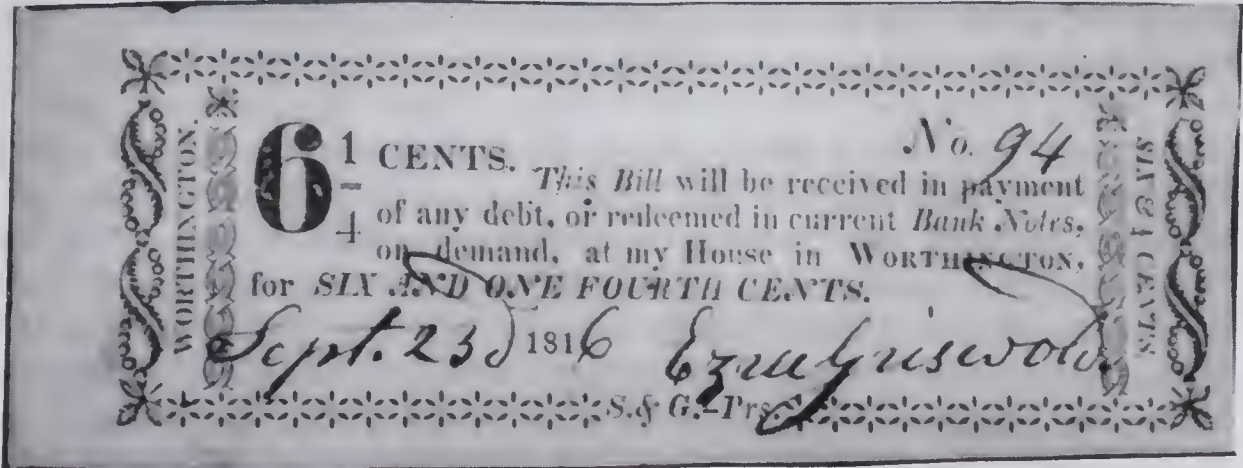 WORTHINGTON.
6 1/4 CENTS.
No. 94
This Bill will be received in payment
of any debt, or redeemed in current Bank Notes,
on demand, at my House in WORTHINGTON,
for SIX AND ONE FOURTH CENTS.
Sept. 23d 1816 Ezra Griswold
S. & G.-Prs.
SIX & 1/4 CENTS.